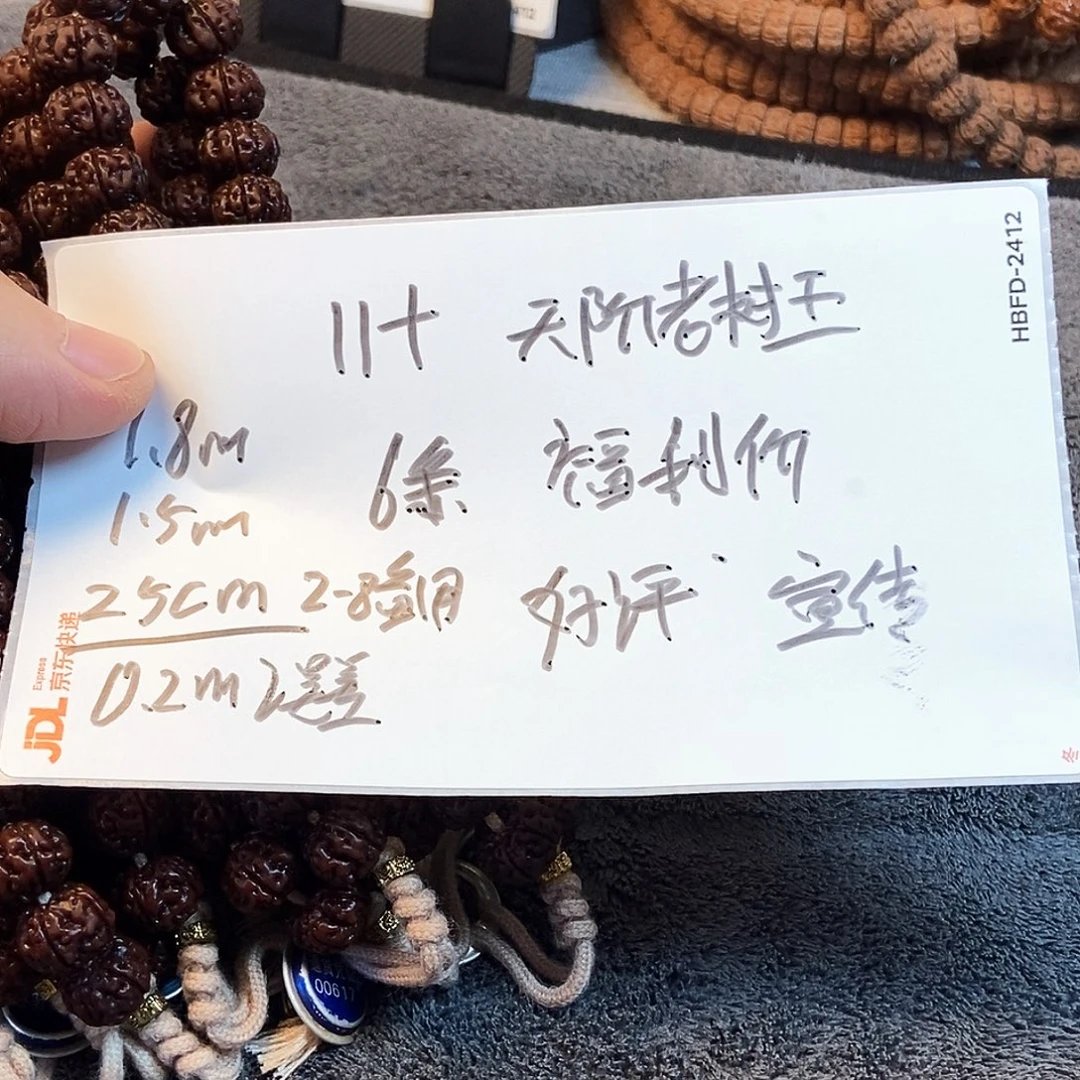 11十 天阶老树王
1.8m 6条 福利价
1.5m
25cm 2-8 好评、宣传
0.2m 误差
HBFD-2412
JDL 京东快递
Express
冬
00617